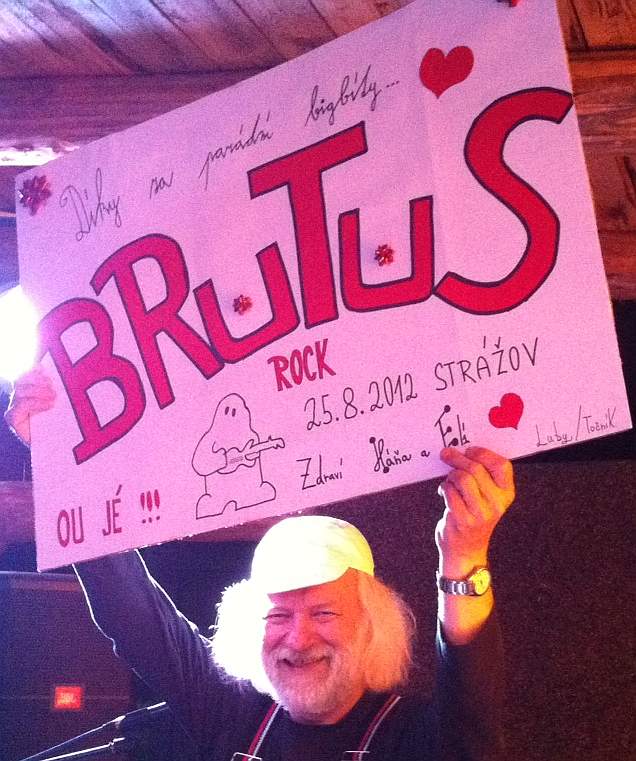 Díky za parádní bigbíty...
BRUTUS
ROCK
25.8.2012 STRÁŽOV
OU JÉ !!!
Zdraví Háňa a Fílá
Luby/Točník